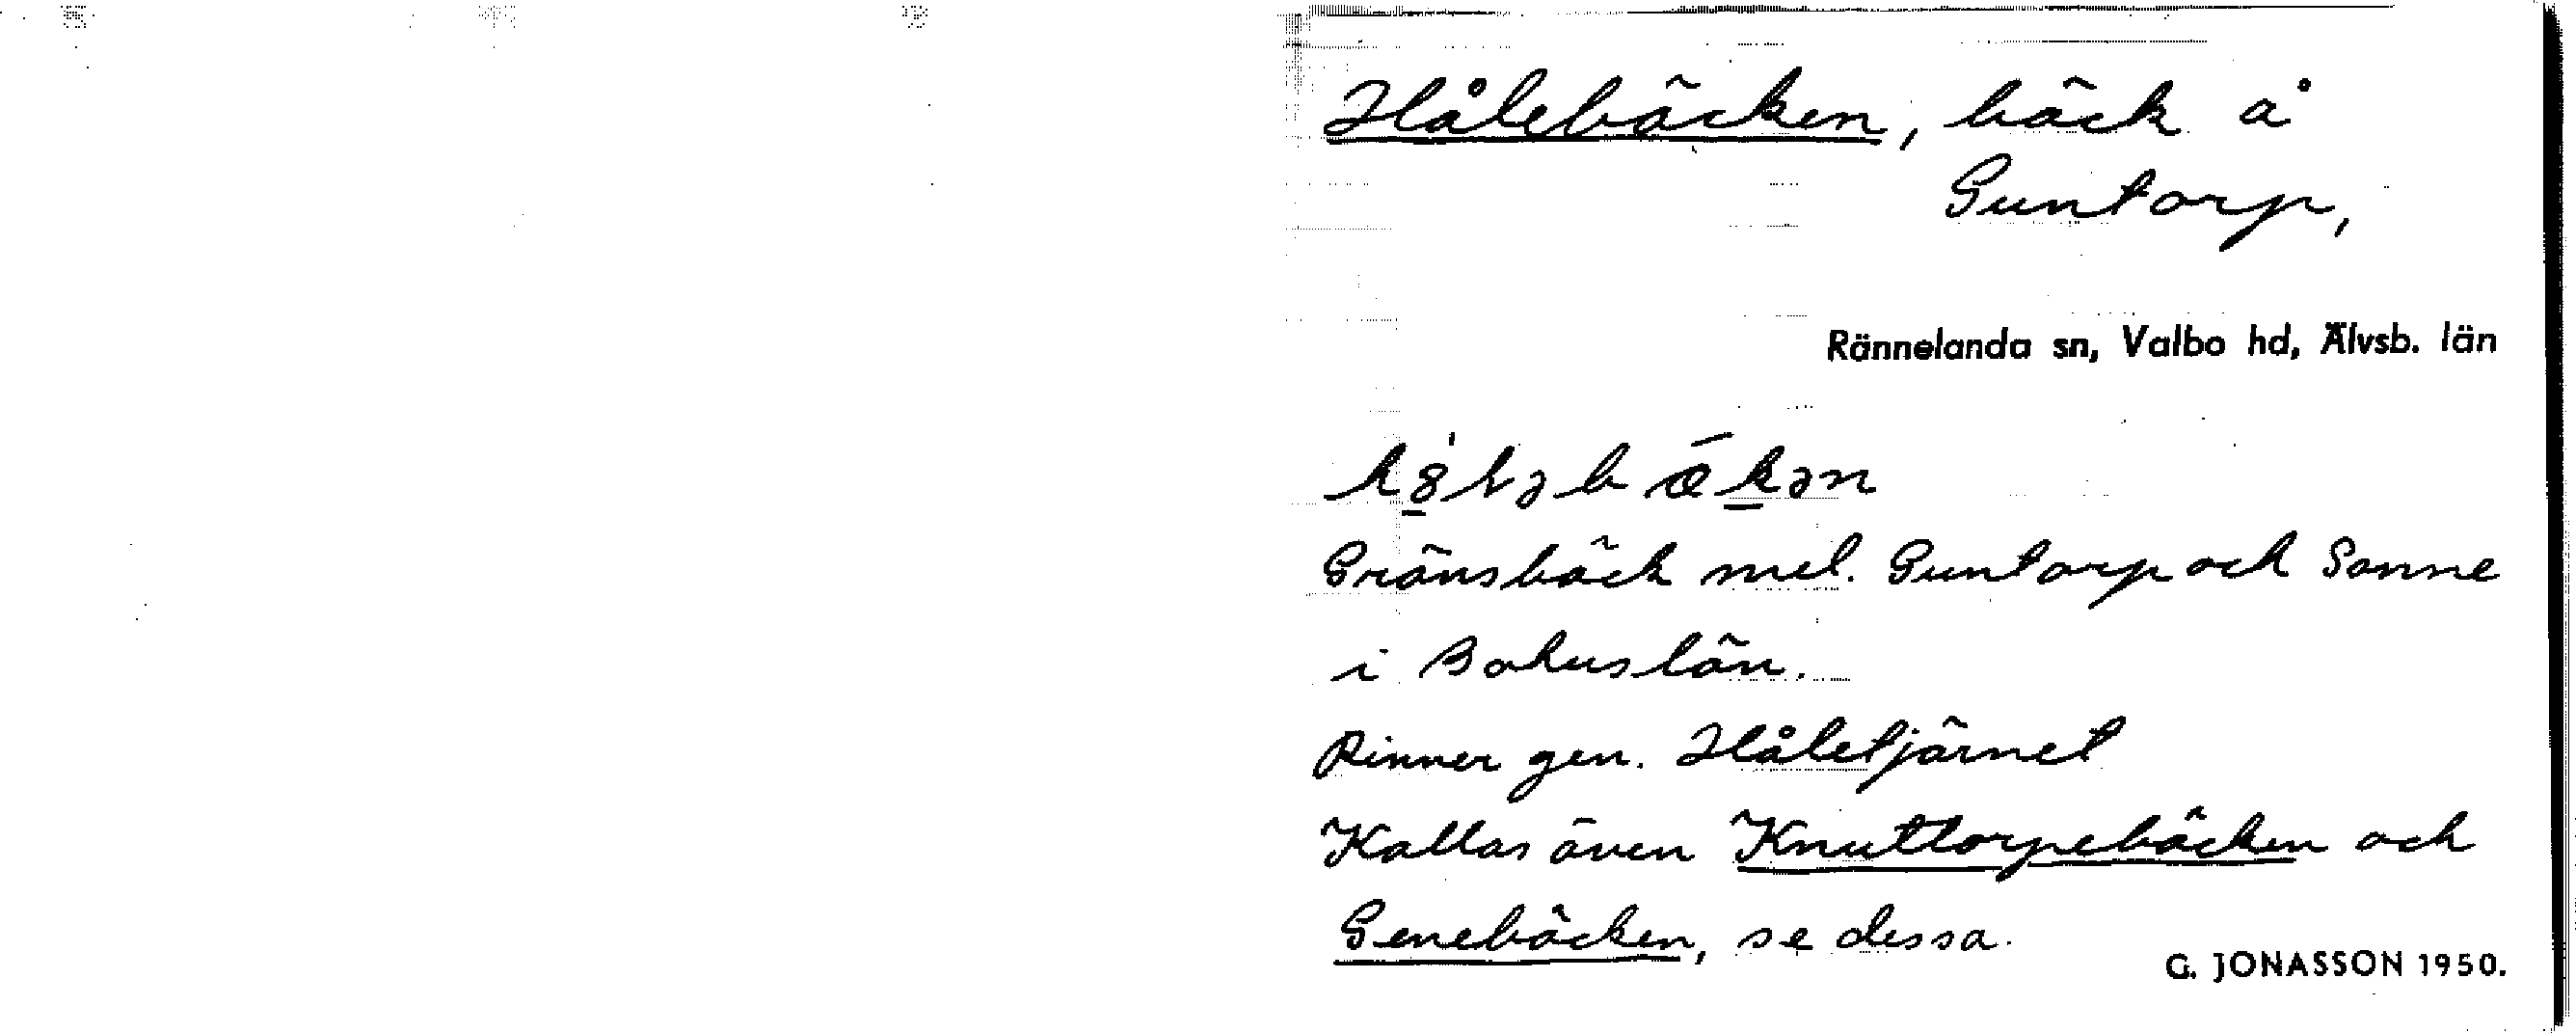 Hålebäcken, bäck å
Guntorp,
Rännelanda sn, Valbo hd, Älvsb. län
Gränsbäck mel. Guntorp och Sanne
i Bohuslän.
Rinner gen. Håletjärnet
Kallas även Knuttorpebäcken och
Genebäcken, se dessa.
G. JONASSON 1950.